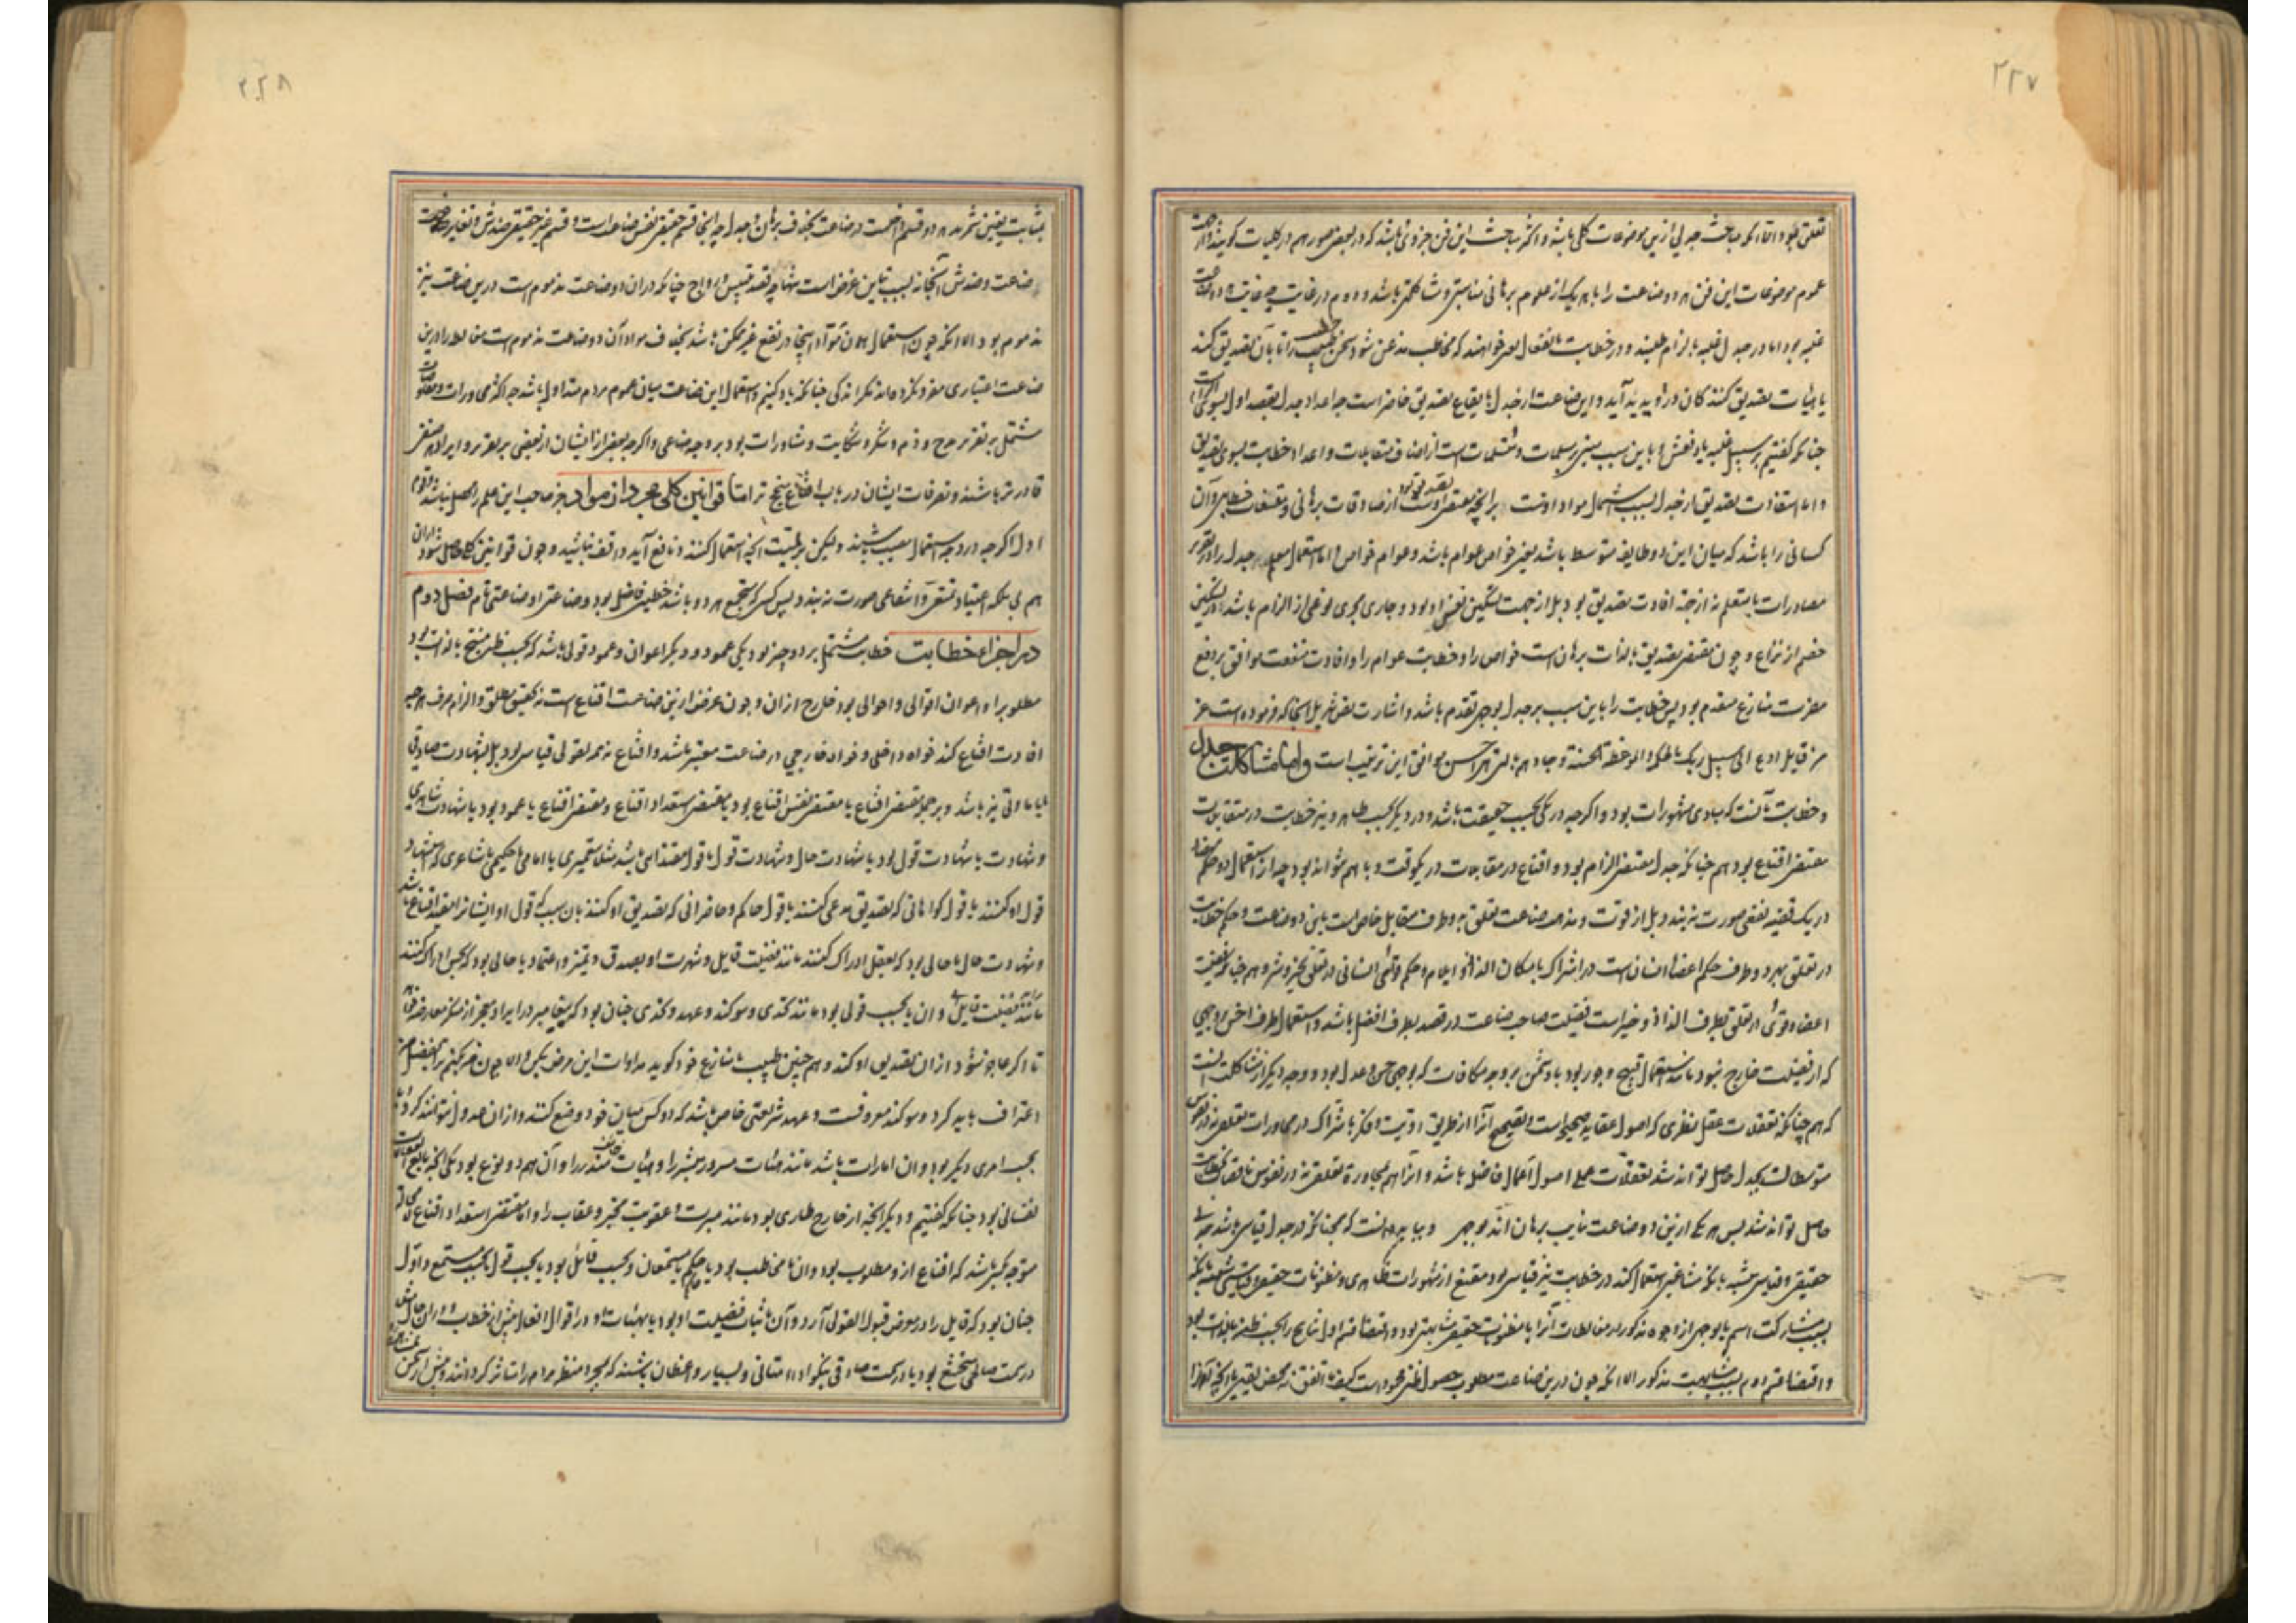 ۲۲۷
تعلق بود اما آنکه مباحث جدلی ازین موضوعات کلی باشد و اکثر مباحث این فن جزوی باشد که در بعضی صور هم در کلیات گویند
عموم موضوعات این فن هر دو صناعت را با هر یک از علوم برهانی مناسبتی و مشاکلتی باشد و دوم در غایت چه غایت هر دو
غلبه بود اما در جدل غلبه بالزام طلبند و در خطابت بانفعال یعنی خواهند که مخاطب مذعن شود سخن خطیب را تا بآن تصدیق کند
یا هیأت تصدیق کنندگان در او پدید آید و این صناعت از جدل بایقاع تصدیق خاص‌تر است چه اعداد جدل بقصد اول بسوی
چنانکه گفتیم بر سبیل غلبه یا دفعش و باین سبب مبنی بر مسلمات و متسلمات است از اصناف متقابلات و اعداد خطابت بسوی تصدیق
و اما استفادت تصدیق از جدل بسبب استعمال مواد اوست بر آنچه مقتضی تصدیق بود از صادقات برهانی و مقنعات خطابی و آن
کسانی را باشد که میان این دو طایفه متوسط باشد یعنی خواص عوام باشد و عوام خواص و اما استعمال معلم جدل را در تقریر
مصادرات با متعلم نه از جهت افادت تصدیق بود بل از جهت تسکین نفس او بود و جاری مجری نوعی از الزام باشد
خصم از نزاع و چون مقتضی تصدیق بالذات برهان است خواص را و خطابت عوام را و افادت منفعت موافق بر دفع
مضرت منازع مقدم بود پس خطابت را باین سبب بر جدل بوجهی تقدم باشد و اشارت نص تنزیل آنجا که فرموده است عز
من قایل ادع الی سبیل ربک بالحکمة و الموعظة الحسنة و جادلهم بالتی هی احسن موافق این ترتیب است و اما مشاکلت جدل
و خطابت آنست که مبادی مشهورات بود و اگر چه در یکی بحسب حقیقت باشد و در دیگر بحسب ظاهر و نیز خطابت در متقابلات
مقتضی اقناع بود هم چنانکه جدل مقتضی الزام بود و اقناع در متقابلات در یکوقت و با هم نتواند بود چه از استعمال دو
در یک قضیه نفعی صورت نبندد بل از قوت و مذهب صناعت تعلق به دو طرف متقابل خاص است باین دو صناعت و حکم خطابت
در تعلق بهر دو طرف حکم اعضاء انسان است در اشتراک با مکان الذاذ و ایلام و حکم قوتهای انسانی در تعلق بخیر و شر و هم چنانکه فضیلت
اعضاء و قوی در تعلق بطرف الذاذ و خیر است فضیلت صاحب صناعت در قصد بطرف افضل باشد و استعمال طرف اخس بر وجهی
که از فضیلت خارج نبود مانند استعمال قبیح و جور بود با دشمن بر وجه مکافات که بوجهی حسن و عدل بود و وجه دیگر از مشاکلت آنست
که هم چنانکه تعقلات عقل نظری که اصول عقاید صحیح است و تصحیح آنرا از طریق رویت و فکر باشتراک در محاورات تعلقی نه در نفوس
متوسطان بجدل حاصل تواند شد تعقلات عملی اصول اعمال فاضل باشد و آنرا هم بمحاوره تعلقی نه در نفوس ناقصان بخطابت
حاصل تواند شد پس هر یک ازین دو صناعت نایب برهان اند بوجهی و بباید دانست که همچنانکه در جدل قیاس باشد
حقیقی و قیاس مشبه بآنکه مشاغبی استعمال کند در خطابت نیز قیاسی بود مقنع از مشهورات ظاهری و مظنونات حقیقی و قیاسی مشبه بآنکه
بسبب مشارکت اسم یا بوجهی از وجوه مذکور در مغالطات آنرا با مظنونات حقیقی مشابهتی بود و اقتضاء قسم اول نتایج را بحسب ظن بالذات بود
و اقتضاء قسم دوم بسبب مشابهت مذکور الا آنکه چون درین صناعت مطلوب حصول ظن مجرد است کیف ما اتفق نه محض یقین
۲۲۸
بمثابت یقین شمرند هر دو قسم داخلست در صناعت بخلاف برهان و جدل چه آنجا قسم حقیقی نفس صناعت است و قسم غیر حقیقی ضدش
صناعت و ضدش آنجا نه بسبب تباین غرض است تنها چه قصد تلبیس و رواج چنانکه در آن دو صناعت مذموم است درین صناعت نیز
مذموم بود الا آنکه چون استعمال آن مواد اینجا در نفع غیر ممکن باشد بخلاف مواد آن دو صناعت مذموم است مغالطه را درین
صناعت اعتباری مفرد نکرده‌اند مگر اندکی چنانکه یاد کنیم و استعمال این صناعت میان عموم مردم متداول باشد چه اکثر محاورات و
مشتمل بر تقریر مدح و ذم و شکر و شکایت و مشاورات بود بر وجه صناعی و اگر چه بعضی از ایشان از بعضی بر تقریر و ایراد
قادرتر باشند و تصرفات ایشان در باب اقناع منجح‌تر اما قوانین کلی مجرد از مواد جز صاحب این علم را حاصل نباشد
اول اگر چه در وجه استعمال مصیب باشند ولیکن بر لمیت آنچه استعمال کنند و نافع آید واقف نباشند و چون قوانین کلی حاصل شود
هم بی ملکه اعتیاد تمشی و انتفاعی صورت نبندد پس کسی که مستجمع هر دو باشد خطیبی فاضل بود و صناعت او صناعتی تام فصل دوم
در اجزاء خطابت خطابت مشتمل بر دو چیز بود یکی عمود و دیگر اعوان و عمود قولی باشد که بحسب ظن منتج بالذات بود
مطلوب را و اعوان اقوالی و احوالی بود خارج از آن و چون غرض ازین صناعت اقناع است نه تحقیق مطلق و الزام صرف هر چه
افادت اقناع کند خواه داخلی و خواه خارجی در صناعت معتبر باشد و اقناع نه همه بقولی قیاسی بود بل بشهادت صادقی
باشد و بر جمله مقتضی اقناع یا مقتضی نفس اقناع بود یا مقتضی استعداد اقناع و مقتضی اقناع یا عمود بود یا شهادت
و شهادت یا شهادت قول بود یا شهادت حال و شهادت قول یا قول مقتدائی باشد مثلا پیغمبری یا امامی یا حکیمی یا شاعری که استشهاد
قول او کنند یا قول گواهانی که تصدیق مدعی کنند یا قول حاکم و حاضرانی که تصدیق او کنند بآن سبب که قول او ایشانرا مفید اقناع باشد
و شهادت حال یا حالی بود که بعقل ادراک کنند مانند فضیلت قایل و شهرت او بصدق و تمیز و اعتماد یا حالی بود که بحس ادراک کنند
مانند فضیلت قایل و آن یا بحسب قولی بود مانند تحدی و سوگند و عهد و تحدی چنان بود که پیغامبر در ایراد معجز از منکر معارضه خواهد
تا اگر عاجز شود از آن تصدیق او کند و هم چنین طبیب با منازع خود گوید مداوات این مرض بکن و الا چون من بکنم بر فضل من
اعتراف باید کرد و سوگند معروفست و عهد شریعتی خاص باشد که دو کس میان خود وضع کنند و از آن عدول نتوانند کرد و یا
بحسب امری دیگر بود و آن امارات باشد مانند هیئات مسرور مبشر را و هیئات خائف منذر را و آن هم دو نوع بود یکی آنچه تابع انفعالات
نفسانی بود چنانکه گفتیم و دیگر آنچه از خارج طاری بود مانند مبرت و عقوبت مخبر و عقاب را و اما مقتضی استعداد اقناع
متوجه بکسی باشد که اقناع ازو مطلوب بود و آن یا مخاطب بود یا حاکم یا مستمعان و بحسب قائل بود یا بحسب قول یا بحسب مستمع و اول
چنان بود که قایل را در معرض قبول القول آرد و آن باثبات فضیلت او بود یا بهیئات او در اقوال افعال پیش از خطاب و در آن حال
در سمت صالحی متخشع بود یا در سمت صادقی نیکوادا متانی و بسیار واعظان باشند که بمجرد منظر مردم را متأثر گردانند و پیش از سخن